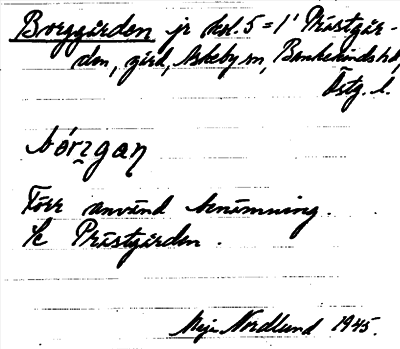 Borggården jr hsl. 5 = 1' Prästgår-
den, gård, Askeby sn, Bankekinds hd,
Östg. l.
bórgan
Förr använd benämning.
Se Prästgården.
Nordlund 1945.